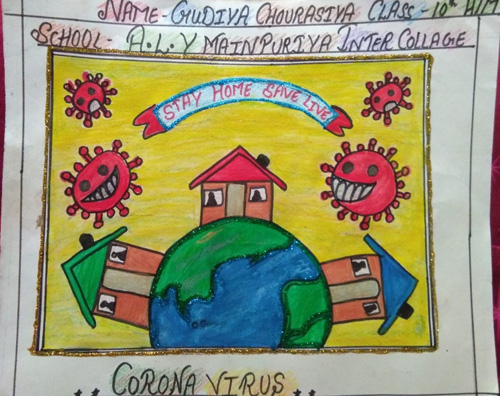 NAME- GUDIYA CHOURASIYA CLASS- 10th H/M
SCHOOL- A.L.Y MAINPURIYA INTER COLLAGE
STAY HOME SAVE LIVE
CORONA VIRUS